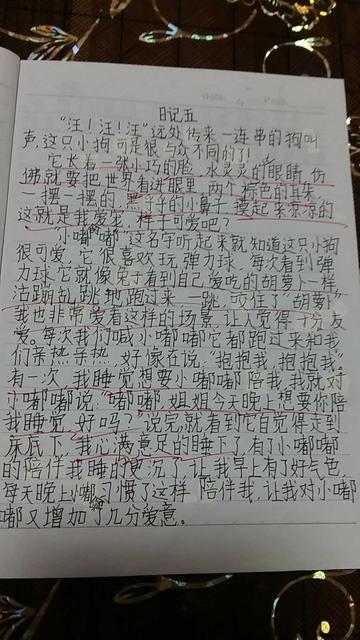 日记五
“汪！汪！汪”远处传来一连串的狗叫
声,这只小狗可是很与众不同的了!
它长着一张小巧的脸,水灵灵的眼睛,仿
佛就要把世界看进眼里,两个棕色的耳朵
一摆一摆的,黑乎乎的小鼻子,摸起来凉凉的
这就是我爱宠,样子可爱吧?
小嘟嘟,这名字听起来就知道这只小狗
很可爱,它很喜欢玩弹力球,每次看到弹
力球它就像兔子看到自己爱吃的胡萝卜一样,
活蹦乱跳地跑过来一跳,咬住了“胡萝卜”
我也非常爱看这样的场景,让人觉得十分友
爱。每次我们喊小嘟嘟它都跑过来和我
们亲热亲热,好像在说:“抱抱我,抱抱我。”
有一次,我睡觉想要小嘟嘟陪我,我就对
小嘟嘟说:“嘟嘟,姐姐今天晚上想要你陪
我睡觉,好吗?”说完,就看到它自觉得走到
床底下,我心满意足的睡下了,有了小嘟嘟
的陪伴我睡的更沉了,让我早上有了好气色,
每天晚上小嘟习惯了这样陪伴我,让我对小嘟
嘟又增加了几分爱意。